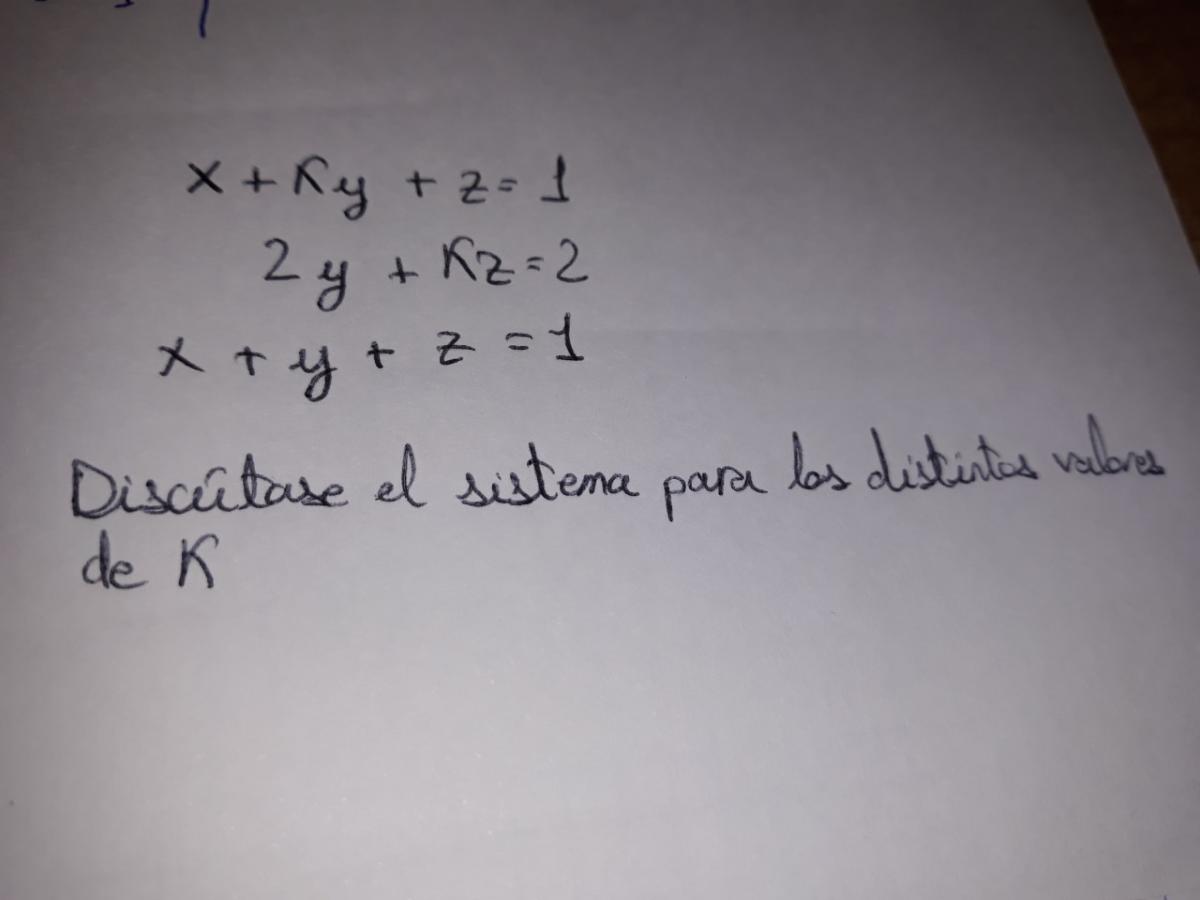 x + Ky + z = 1
2y + Kz = 2
x + y + z = 1
Discútase el sistema para los distintos valores
de K